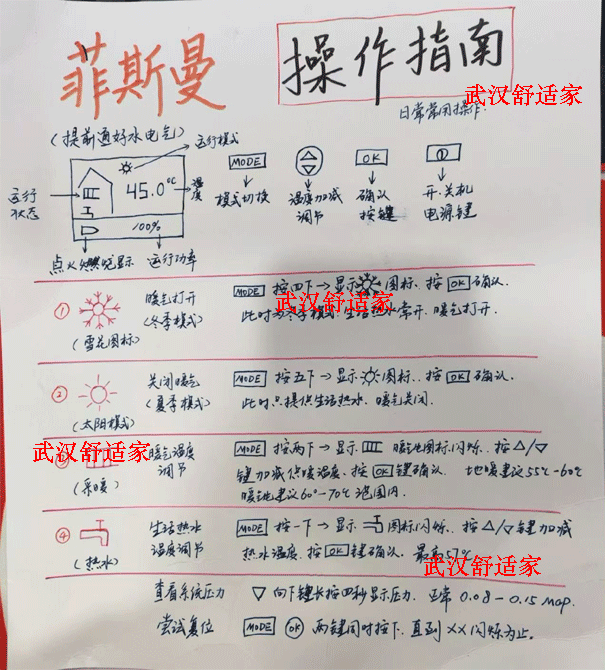 菲斯曼
操作指南
武汉舒适家
日常常用操作.
(提前通好水电气)
运行模式
运行状态
45.0℃
温度
100%
点火燃烧显示
运行功率
MODE
模式切换
温度加减调节
OK
确认按键
开.关机电源键
① 暖气打开
(冬季模式)
(雪花图标)
MODE 按四下→显示 图标、按 OK 确认.
武汉舒适家
此时 冬季模式.生活热水常开、暖气打开.
② 关闭暖气
(夏季模式)
(太阳模式)
MODE 按五下→显示 图标..按 OK 确认.
此时只提供生活热水.暖气关闭.
武汉舒适家
暖气温度
调节
(采暖)
MODE 按两下→显示 暖气图标闪烁.按△/▽
键加减供暖温度、按 OK 键确认. 地暖建议55℃-60℃
暖气建议60°-70℃范围内.
④ 生活热水
温度调节
(热水)
MODE 按一下→显示 图标闪烁..按△/▽键加减
热水温度.按 OK 键确认. 最高57℃
武汉舒适家
查看系统压力 ▽ 向下键长按四秒显示压力. 正常 0.08-0.15 map.
尝试复位 MODE OK 两键同时按下.直到XX闪烁为止.